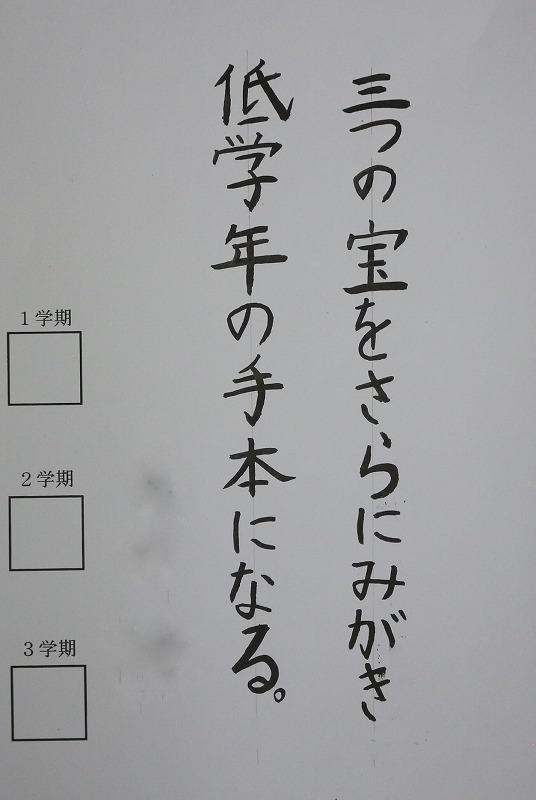 三つの宝をさらにみがき
低学年の手本になる。
１学期
２学期
３学期